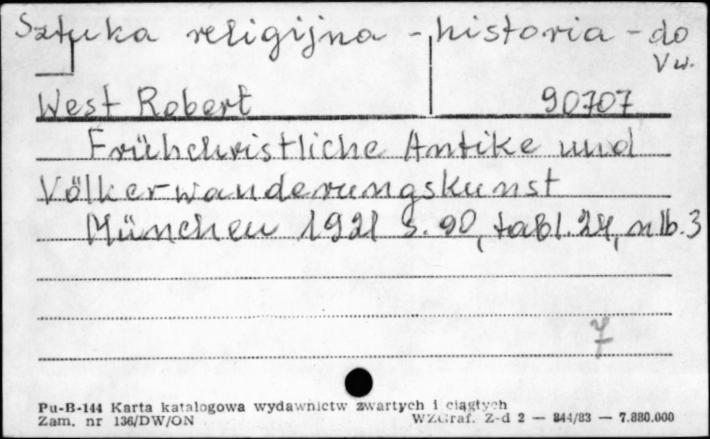 Sztuka religijna - historia - do
V w.
West Robert 90707
Frühchristliche Antike und
Völkerwanderungskunst
München 1921 s. 90, tabl. 24, nlb. 3
7
Pu-B-144 Karta katalogowa wydawnictw zwartych i ciągłych
Zam. nr 136/DW/ON WZGraf. Z-d 2 — 844/83 — 7.880.000